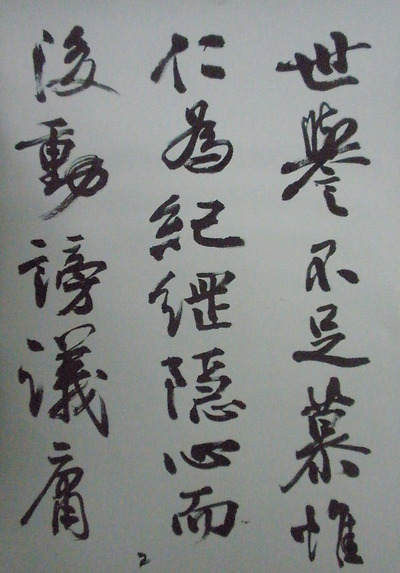 世譽不足慕惟
仁為紀綱隐心而
後動謗議庸
2